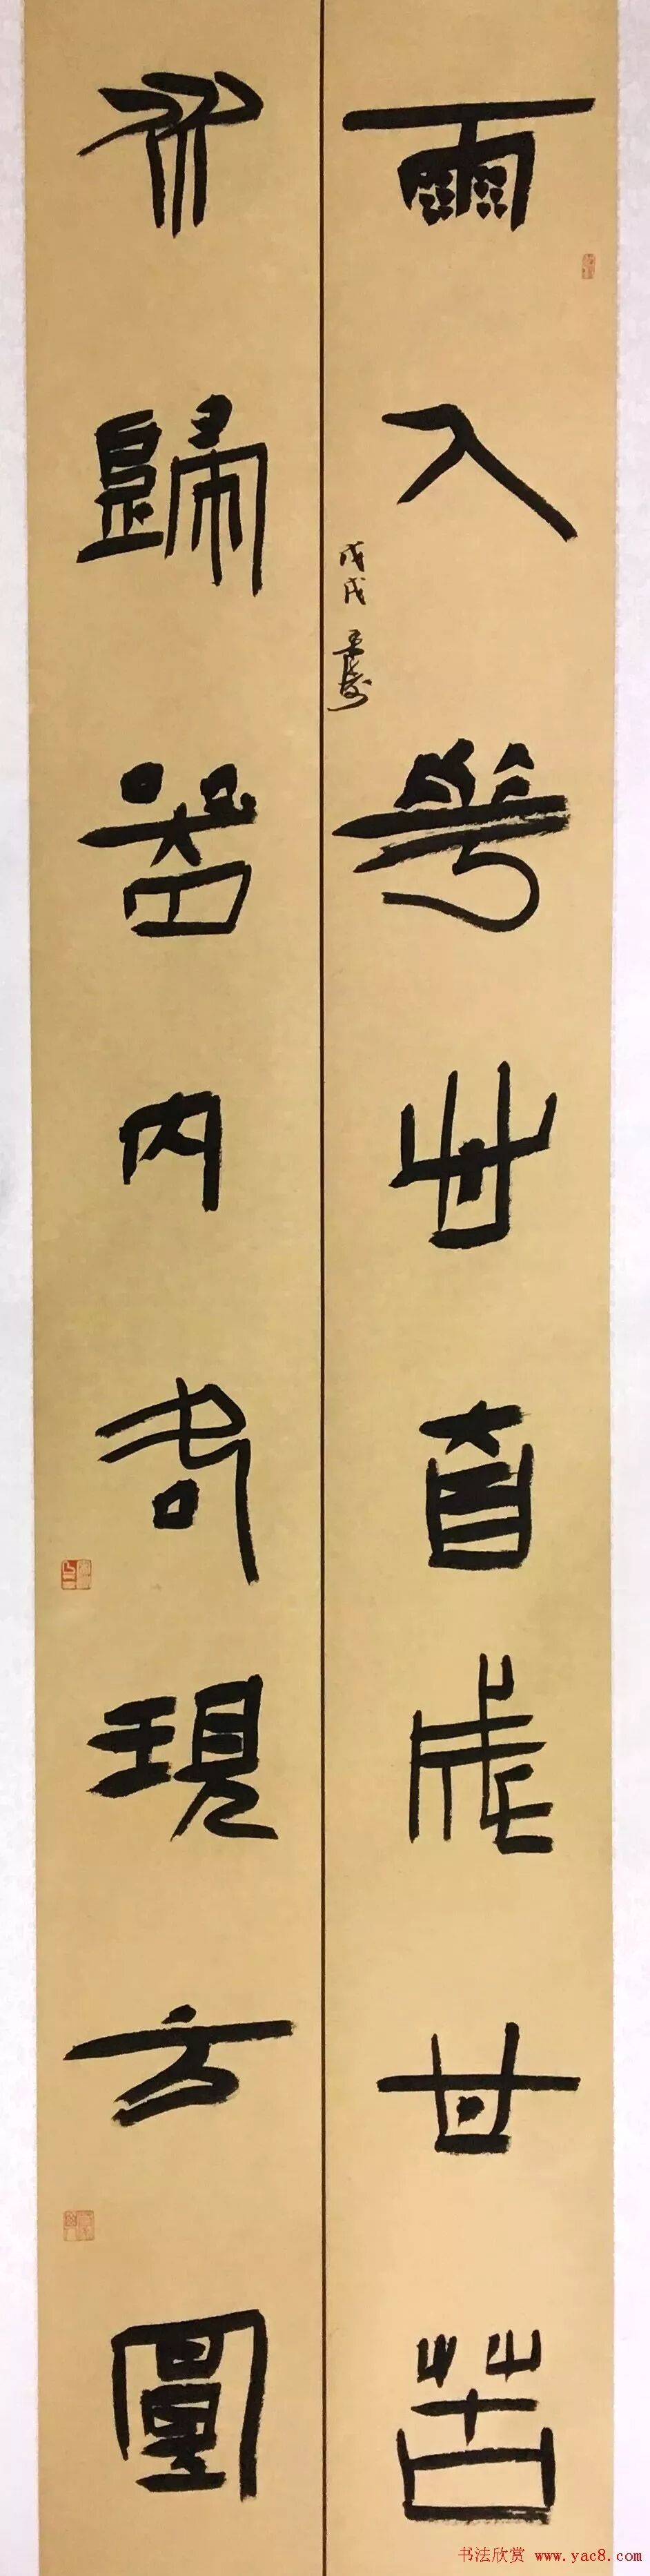 雨入華心自成甘苦
戊戌
水歸器内各現方圓
书法欣赏 www.yac8.com